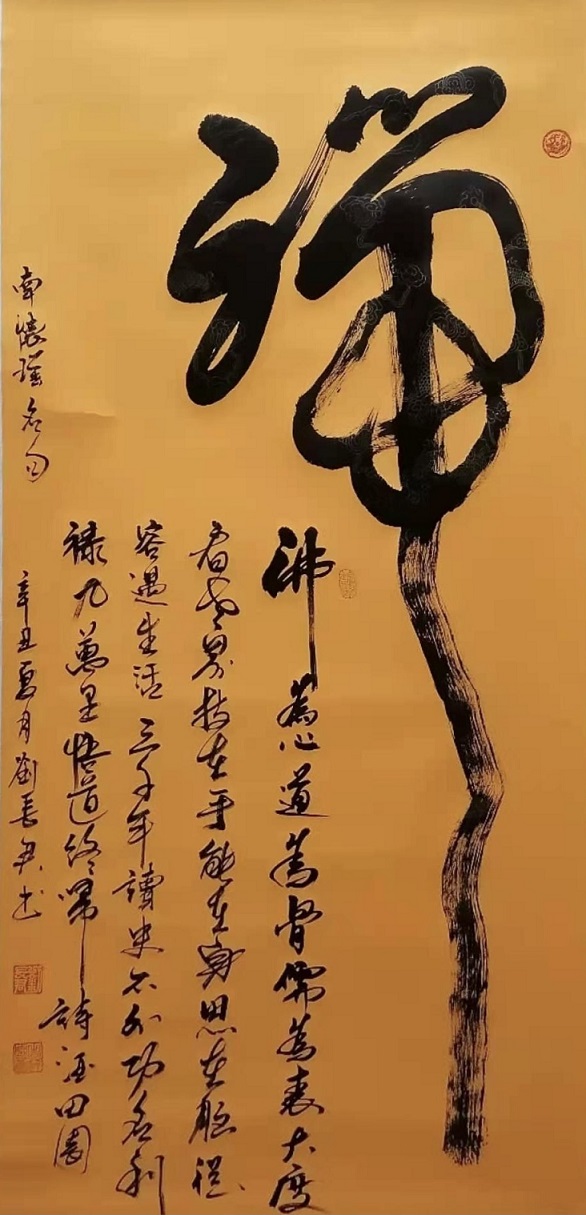 禪
佛為心道為骨儒為表大度
看世界技在手能在身思在腦從
容過生活三千年讀史不外功名利
祿九萬里悟道終歸詩酒田園
南懷瑾名句
辛丑夏月劉長書